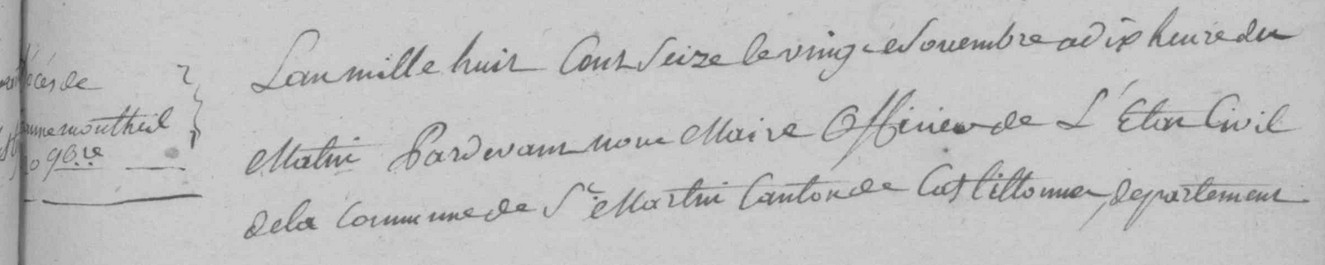 décès de
jeanne montheil
20 9bre
Lan mille huit Cent Seize le vingt Novembre a dix heure du
Matin Pardevant nous Maire Officier de L'Etat Civil
de la Commune de St Martin Canton de Castillonnes, departement